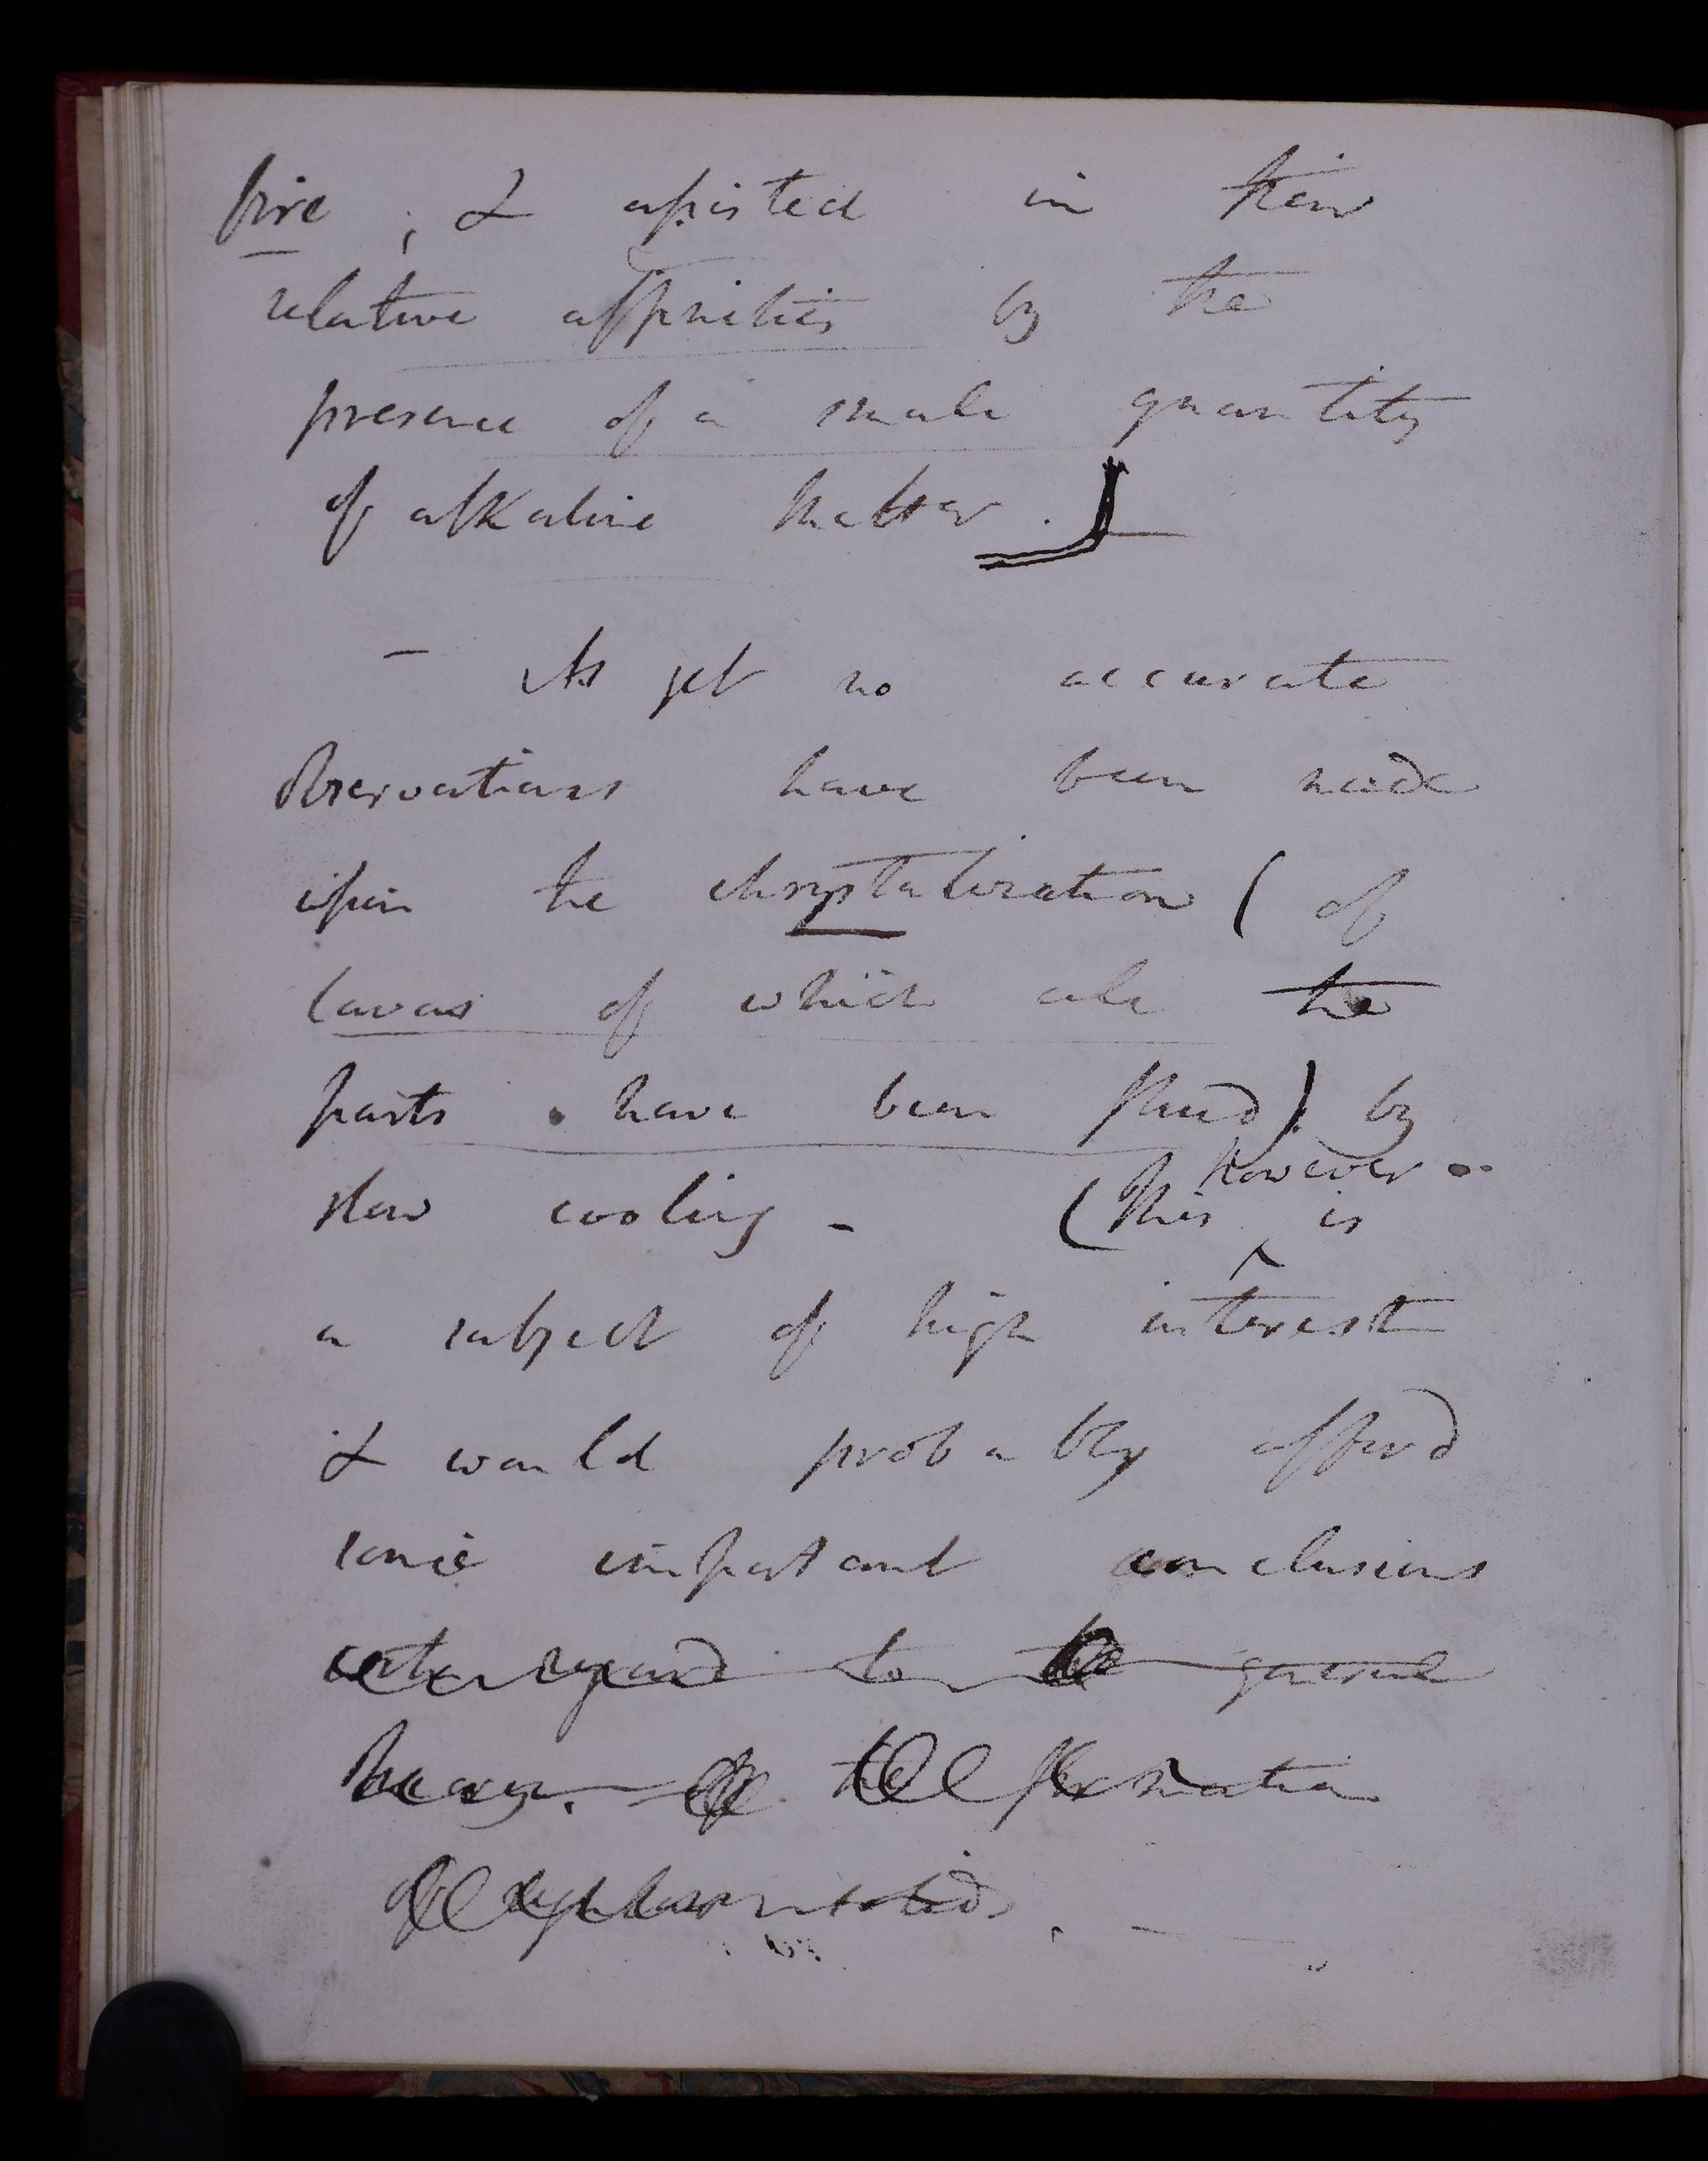 fire ; & assisted in their
relative affinities by the
presence of a small quantity
of alkaline matter .
– As yet no accurate
observations have been made
upon the chrystalization ( of
lavas of which all the
parts have been fluid) by
slow cooling – (This however is
a subject of high interest
& would probably afford
some important conclusions
with regard to the general
theory of the formation
of